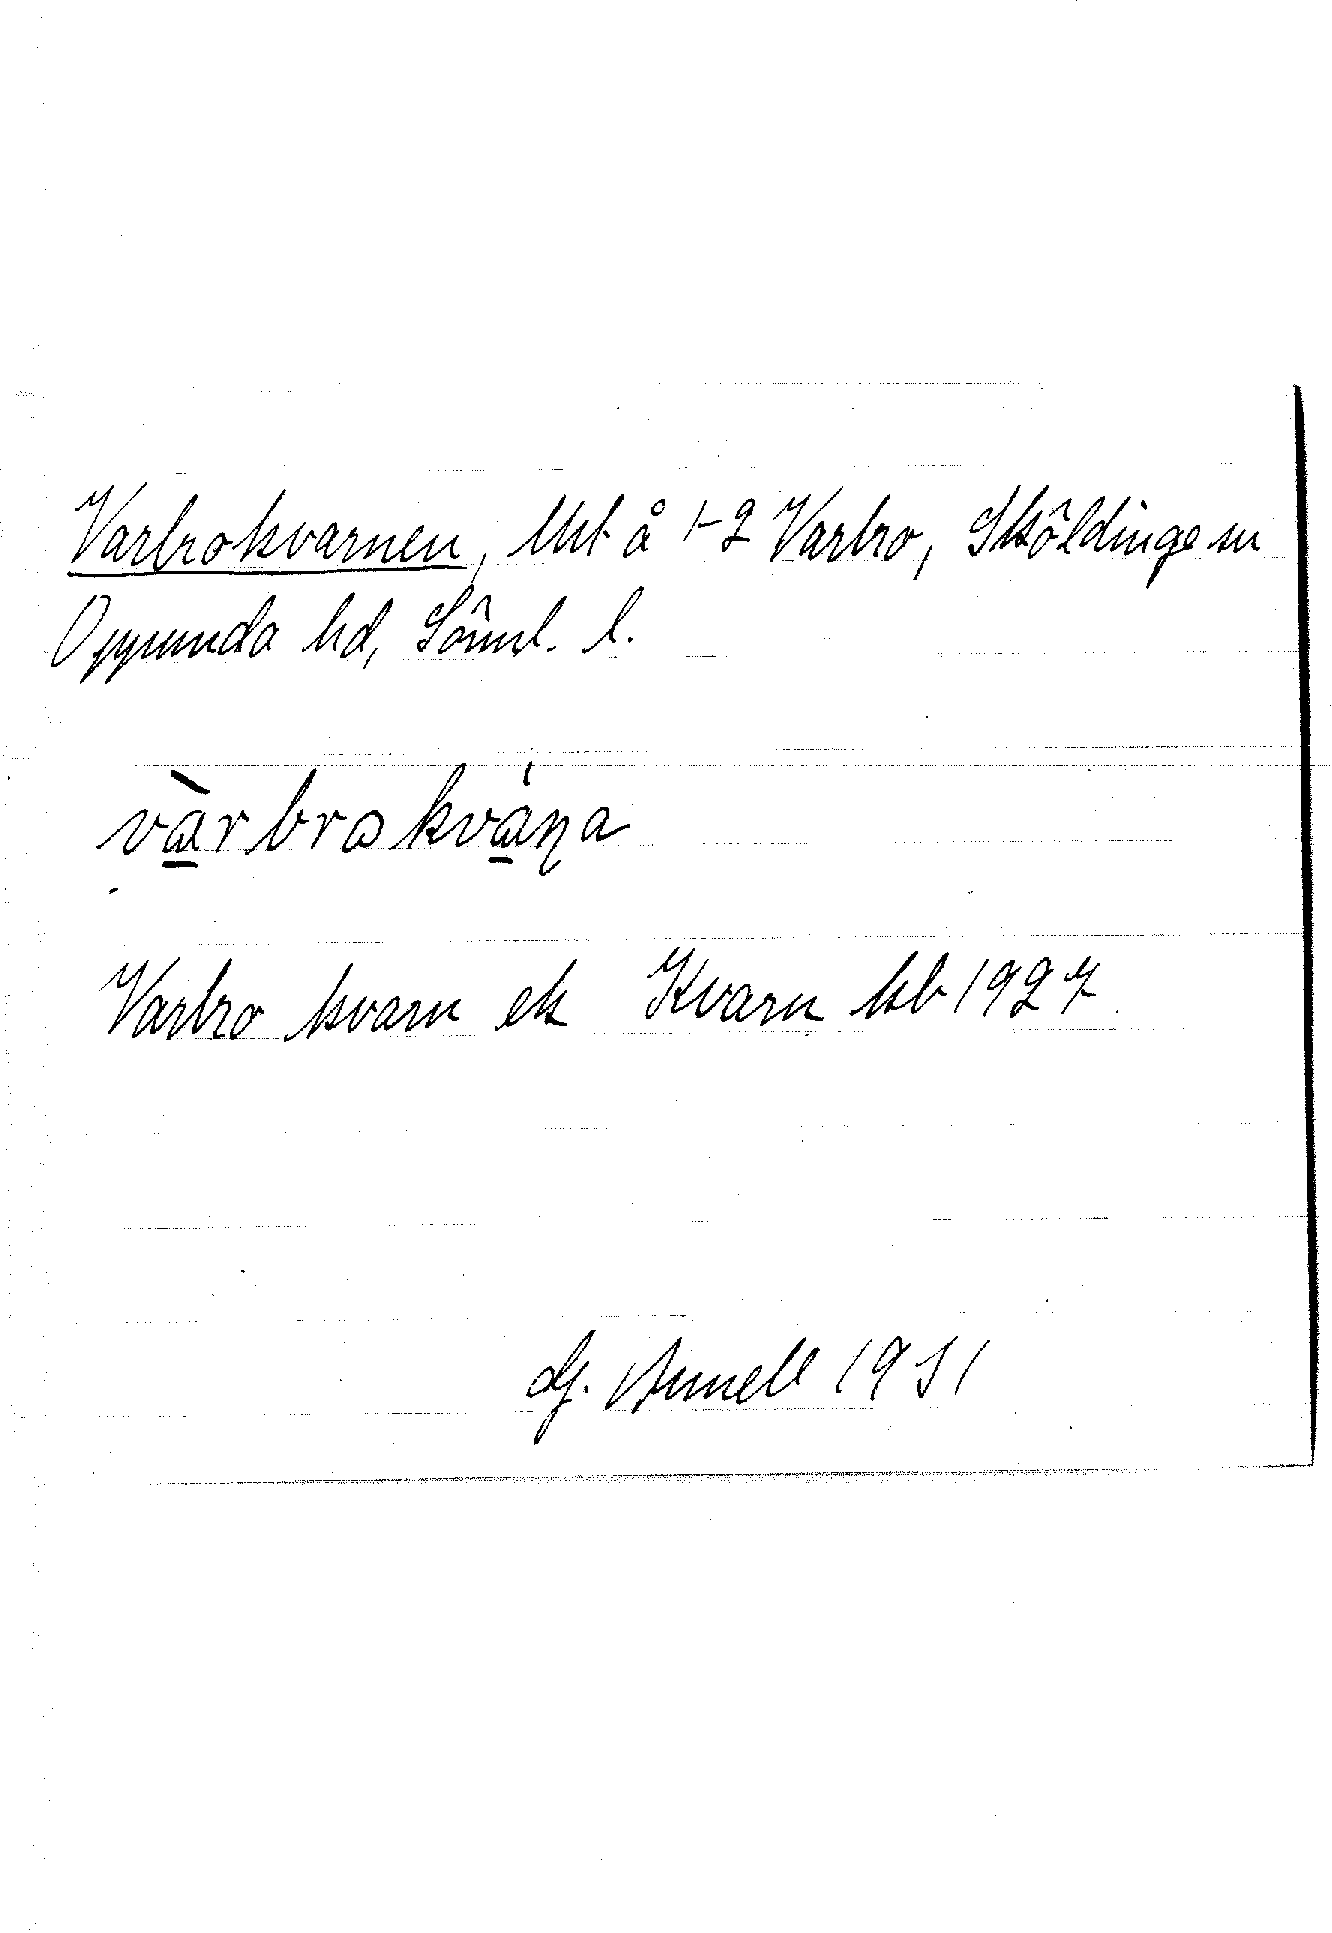 Varbrokvarnen, lht å 1-2 Varbro, Sköldinge sn
Oppunda hd, Söml. l.
vå̱̀rbrokvá̱ṇa
Varbro kvarn ek Kvarn kb 1927
G. Annell 1931